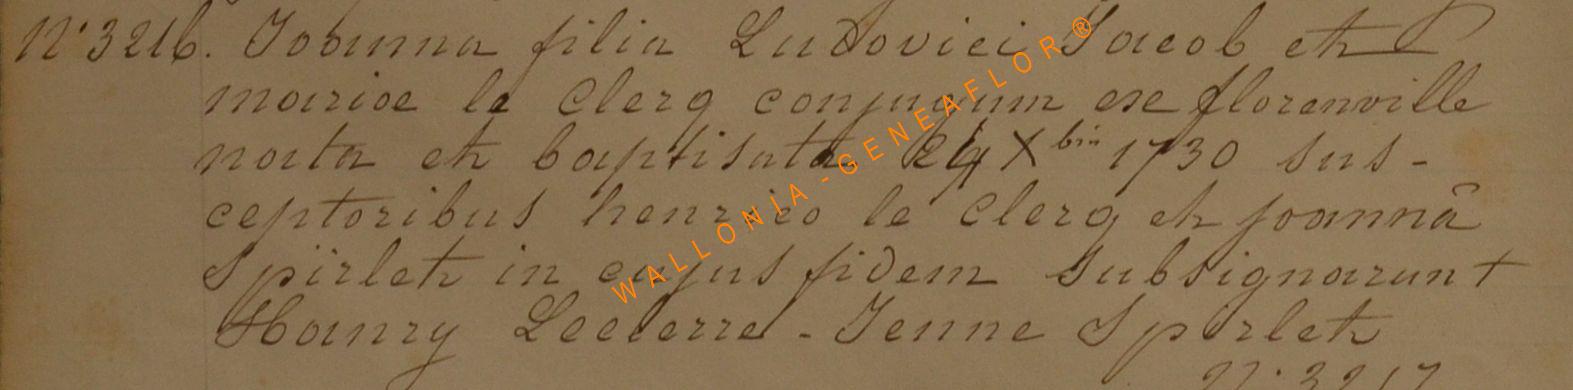 N° 3216. Joanna filia Ludovici Jacob et
mariae le Clerq conjugum ex florenville
nata et baptisata 24 Xbris 1730 sus-
ceptoribus henrico le Clerq et joannâ
Spirlet in cujus fidem subsignarunt
Hanry Leclerre - Jenne Spirlet
N° 3217
WALLONIA-GENEAFLOR®